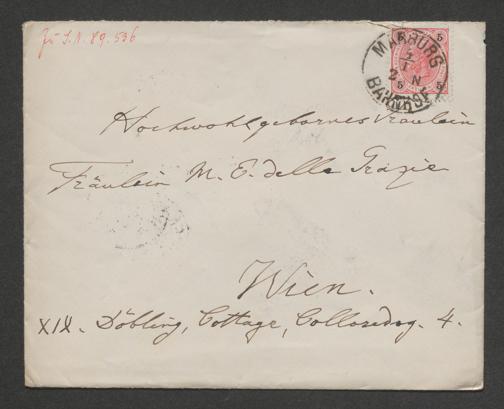 Zu I.N. 89.536
MARBURG
BAHNHOF
5 5
5 5
Hochwohlgebornes Fräulein
Fräulein M. E. delle Grazie
Wien.
XIX. Döbling, Cottage, Colloredog. 4.